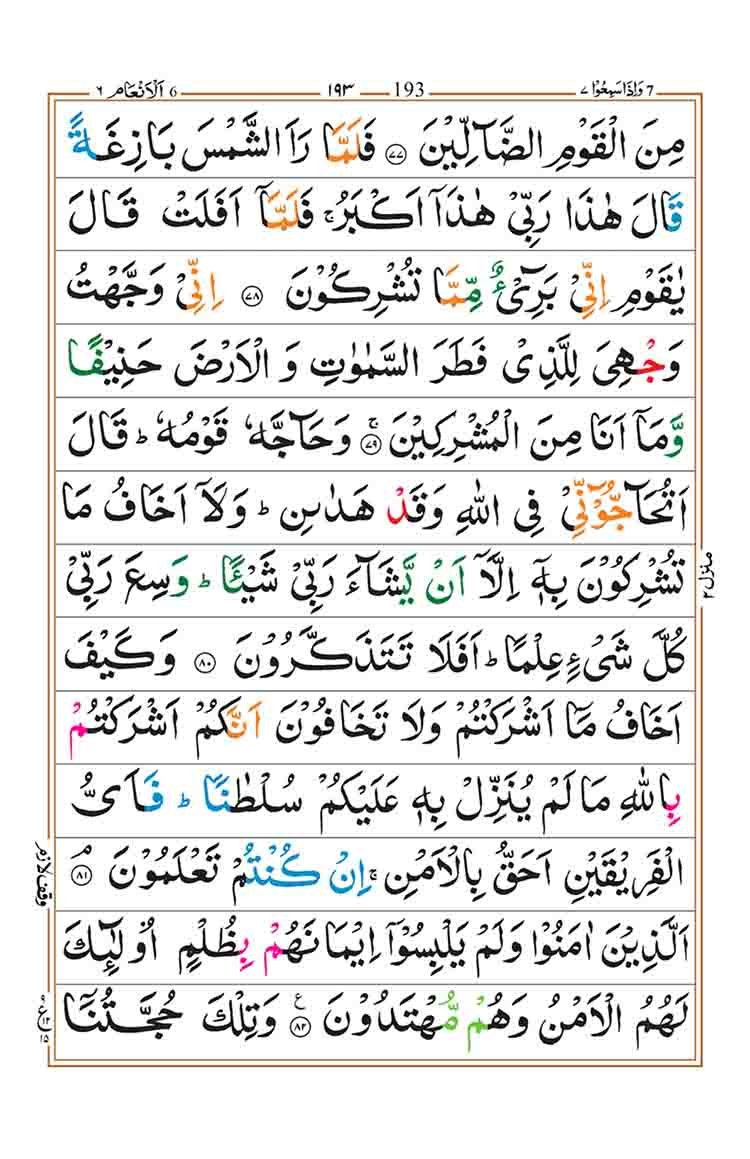 7 وَاِذَا سَمِعُوْا ٧ 193 ١٩٣ 6 اَلْاَنْعَام ٦
مِنَ الْقَوْمِ الضَّآلِّيْنَ ﴿٧٧﴾ فَلَمَّا رَاَ الشَّمْسَ بَازِغَةً
قَالَ هٰذَا رَبِّيْ هٰذَاۤ اَكْبَرُ ۚ فَلَمَّاۤ اَفَلَتْ قَالَ
يٰقَوْمِ اِنِّيْ بَرِيْٓءٌ مِّمَّا تُشْرِكُوْنَ ﴿٧٨﴾ اِنِّيْ وَجَّهْتُ
وَجْهِيَ لِلَّذِيْ فَطَرَ السَّمٰوٰتِ وَ الْاَرْضَ حَنِيْفًا
وَّمَاۤ اَنَا مِنَ الْمُشْرِكِيْنَ ۚ ﴿٧٩﴾ وَحَآجَّهٗ قَوْمُهٗ ؕ قَالَ
اَتُحَآجُّوْٓنِّيْ فِي اللّٰهِ وَقَدْ هَدٰىنِ ؕ وَلَاۤ اَخَافُ مَا
تُشْرِكُوْنَ بِهٖۤ اِلَّاۤ اَنْ يَّشَآءَ رَبِّيْ شَيْـًٔا ؕ وَسِعَ رَبِّيْ
كُلَّ شَيْءٍ عِلْمًا ؕ اَفَلَا تَتَذَكَّرُوْنَ ﴿٨٠﴾ وَكَيْفَ
اَخَافُ مَاۤ اَشْرَكْتُمْ وَلَا تَخَافُوْنَ اَنَّكُمْ اَشْرَكْتُمْ
بِاللّٰهِ مَا لَمْ يُنَزِّلْ بِهٖ عَلَيْكُمْ سُلْطٰنًا ؕ فَاَيُّ
الْفَرِيْقَيْنِ اَحَقُّ بِالْاَمْنِ ۚ اِنْ كُنْتُمْ تَعْلَمُوْنَ ۘ ﴿٨١﴾
اَلَّذِيْنَ اٰمَنُوْا وَلَمْ يَلْبِسُوْۤا اِيْمَانَهُمْ بِظُلْمٍ اُولٰٓئِكَ
لَهُمُ الْاَمْنُ وَهُمْ مُّهْتَدُوْنَ ﴿٨٢﴾ ع وَتِلْكَ حُجَّتُنَاۤ
منزل ٢
وقف لازم